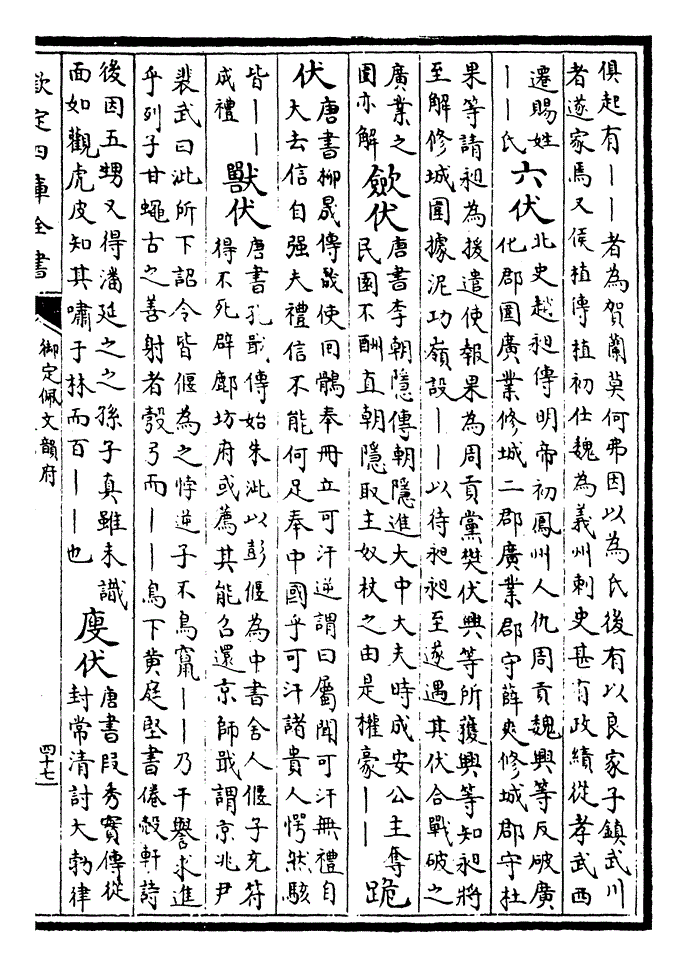 俱起有——者為賀蘭莫何弗因以為氏後有以良家子鎮武川
者遂家焉又侯植傳植初仕魏為義州刺史甚有政績從孝武西
遷賜姓
——氏
六伏
北史趙昶傳明帝初鳳州人仇周貢魏興等反破廣
化郡圍廣業修城二郡廣業郡守薛爽修城郡守杜
果等請昶為援遣使報果為周貢黨樊伏興等所獲興等知昶將
至解修城圍據泥功嶺設——以待昶昶至遂遇其伏合戰破之
廣業之
圍亦解
歛伏
唐書李朝隱傳朝隱進大中大夫時成安公主奪
民園不酬直朝隱取主奴杖之由是權豪——
跪
伏
唐書柳晟傳晟使回鶻奉冊立可汗逆謂曰屬聞可汗無禮自
大去信自强夫禮信不能何足奉中國乎可汗諸貴人愕然駭
皆——
成禮
獸伏
唐書孔戢傳始朱泚以彭偃為中書舍人偃子充符
得不死辟鄜坊府或薦其能召還京師戢謂京兆尹
裴武曰泚所下詔令皆偃為之悖逆子不鳥竄——乃干譽求進
乎列子甘蠅古之善射者彀弓而——鳥下黄庭堅書倦殼軒詩
後因五甥又得潘延之之孫子真雖未識
面如觀虎皮知其嘯于林而百——也
廋伏
唐書段秀實傳從
封常清討大勃律
欽定四庫全書
御定佩文韻府
四十七